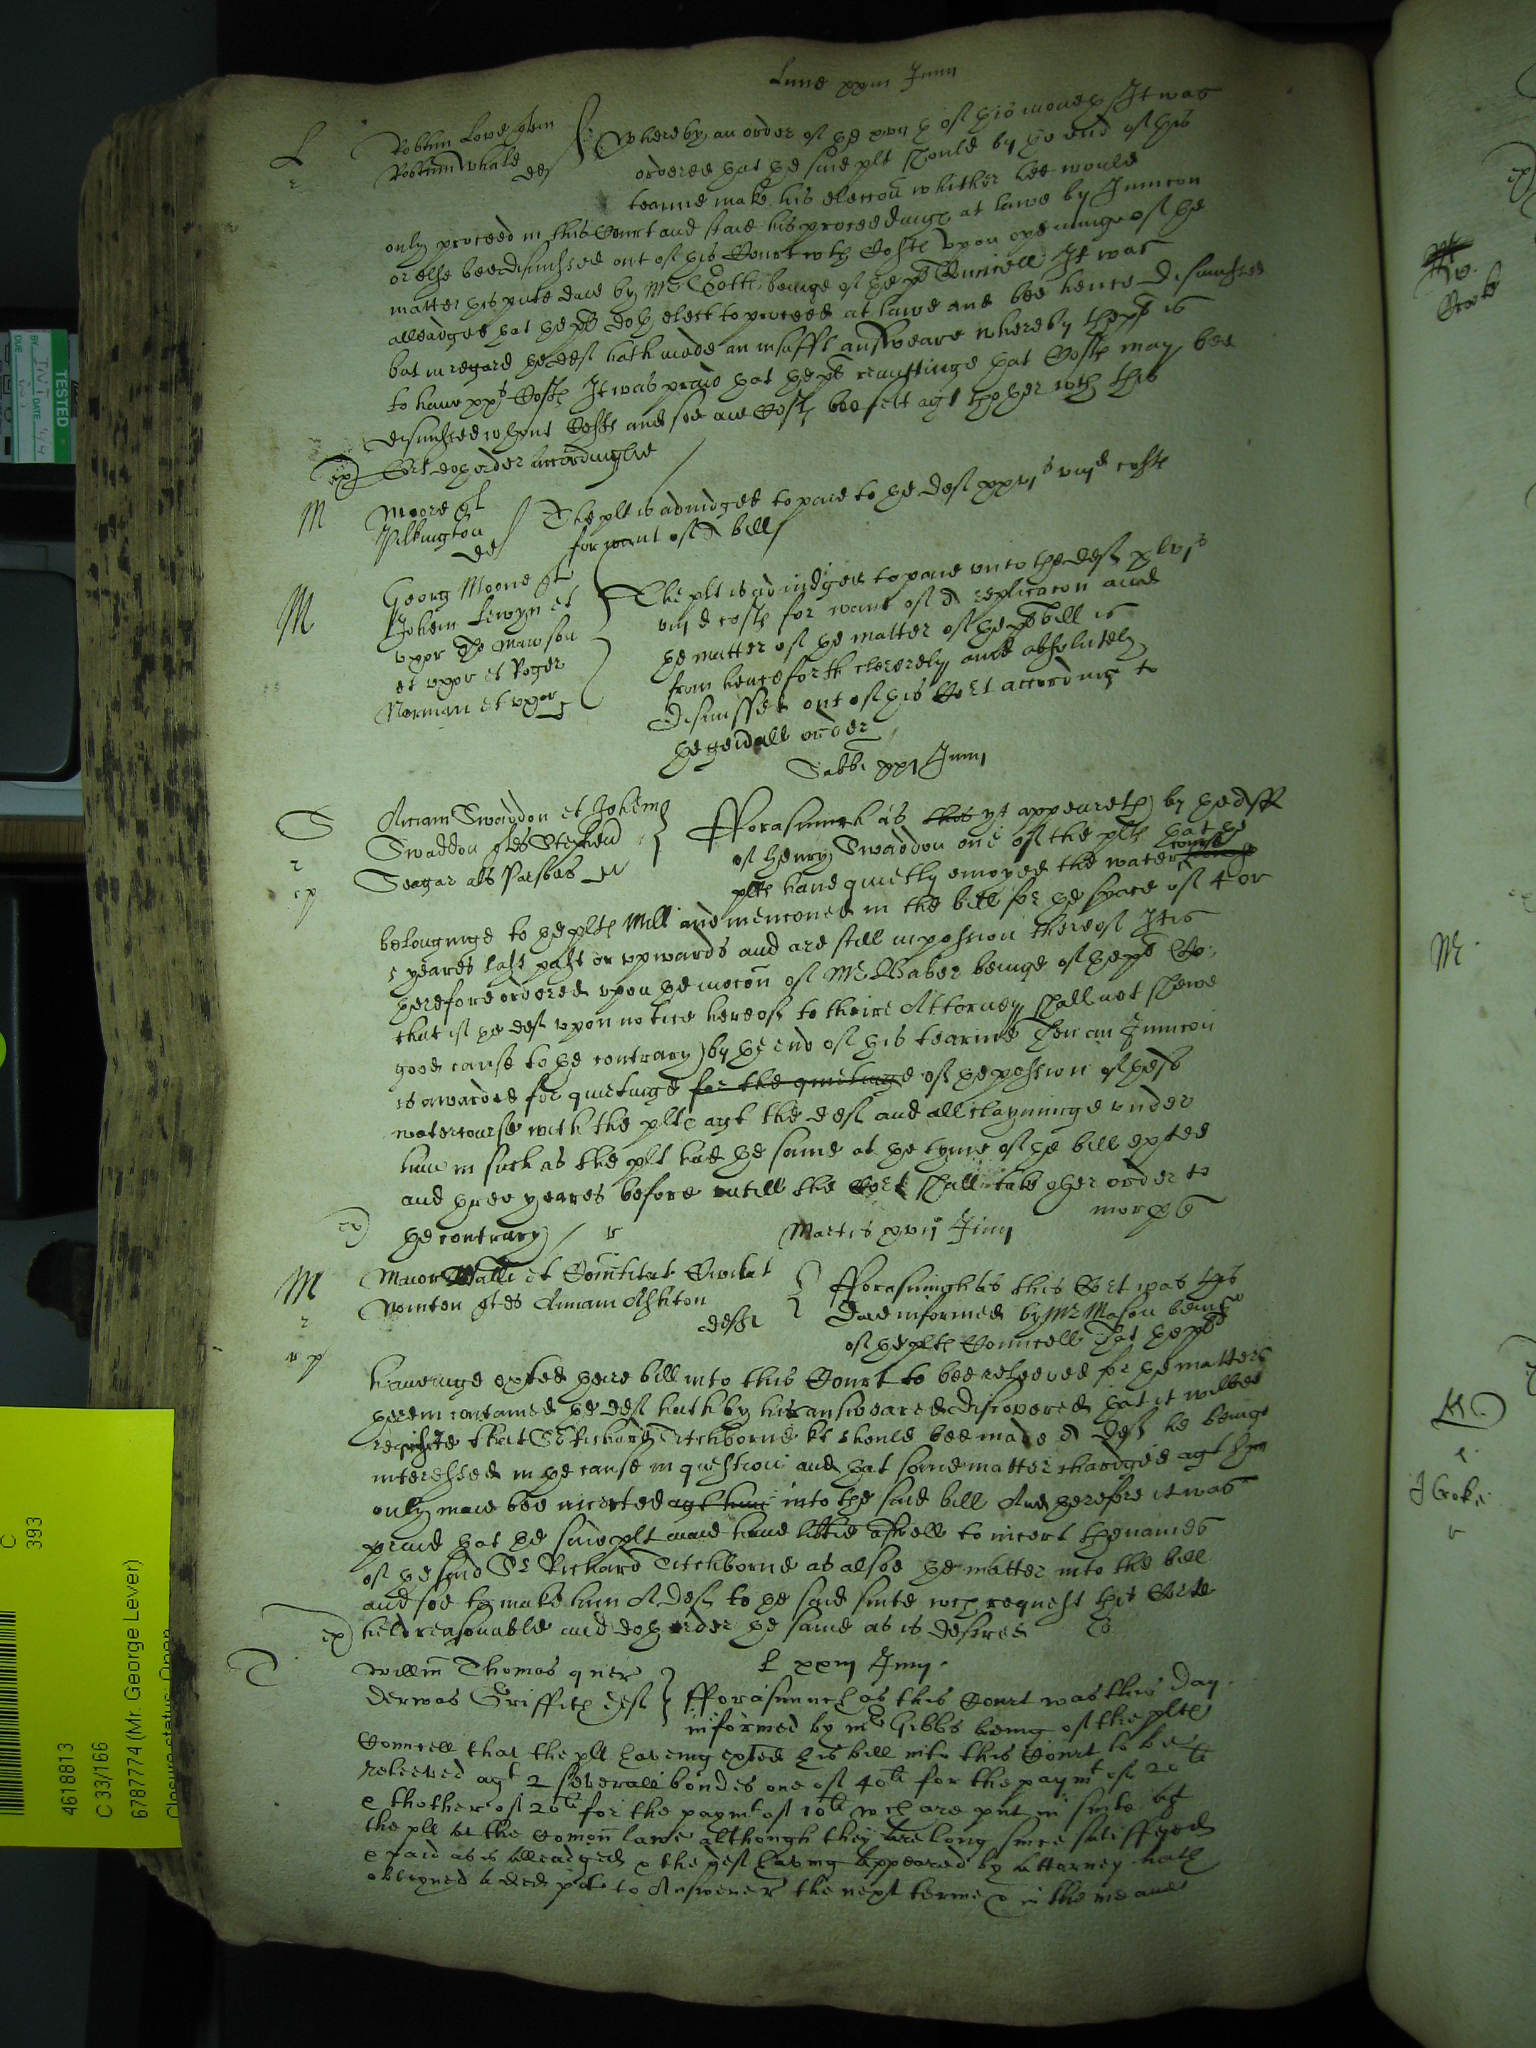 Lune xxiii Junii
L
Robtum Lowe quer
Robtum Whale def
Whereby an order of the xviith of this moneth It was
ordered that the said plt should by the end of this
tearme make his eleccon whither hee would
only proceed in this Court and staie his proceedings at lawe by Iniunccon
or else bee dismissed out of this Court wth Costs upon openinge of the
matter this pnte daie by Mr being of the plts Councell It was
alleadged that the plt doth elect to proceed at lawe and bee hence dismissed
but in regard the def hath made an insufft answeare whereby the plt is
to have xxs Costs It was praid that the plt remittinge that Costs may bee
dismissed wthout Costs and soe are Costs bee sett agt thother wth this
Cort doth order accordinglie
M
Moore qt
Pilkington def
The plt is adiudged to paie to the def xxvis viiid costs
for want of A bill
M
Georg Moone qt
Johem Lewyn et
uxor Tho Mawson
et uxor et Roger
Norman et uxor
The plt is adiudged to paie unto the defts xlvis
viiid costs for want of A replicacon and
the matter of the matter of the plts bill is
from henceforth cleerely and absolutely
dismissed out of this Cort according to
the generall order
Sabbi xxi Junii
S
Annam Swaddon et Johem
Swaddon qtes Stephend
Seagar als Parsons def
Forasmuch as this yt appeareth by thaff
of Henry Swaddon one of the plts that the
plts have quietly enioyed the water course
belonginge to the plts Mill and mencioned in the bill for the space of 4 or
5 yeares last past or upwards and are still in possion thereof It is
therefore ordered upon the mocon of Mr Baber beinge of the plts Co:
that if the def upon notice hereof to theire Attorney shall not shewe
good cause to the contrary by the end of this tearme Then an Iniunccon
is awarded for quietinge for the quietinge of the possion of the sd
watercourse with the plts agt the def and all clayminge under
him in such as the plt had the same at the tyme of the bill exhted
and three yeares before untill the Cort shall take other order to
the contrary
Martis xvii Junii
M
Maior Balli et Comitat Civitat
Winton qtes Annam Ashton
defte
Forasmuch as this Cort was this
daie informed by Mr Mason beinge
of the plts Councell That the plts
haveinge exhted theire bill into this Court to bee releeved for the matters
therein contained the def hath by his answeare discovered that it wilbee
requisite that Sr Richard Titchborne kt should bee made A def he beinge
interessed in the cause in question and that some matter chardged agt him
only maie bee incerted agt him into the said bill And therefore it was
praid that the said plt maie have libtie aswell to incert the names
of the said Sr Richard Titchborne as alsoe the matter into the bill
and soe to make him A def to the said suite wch request this Corte
held reasonable and doth order the same as is desired
T
L xxiii Junii
Willm Thomas quer
Derwas Griffith def
Forasmuch as this Court was this day
informed by mr Gibbs being of the plts
Councell that the plt having exhted his bill into this Court to be
releeved agt 2 severall bondes one of 40li for the paymt of 20li
& thother of 20li for the paymt of 10li wch are put in suite agt
the plt at the Comon lawe although they are long since satisfyed
& paid as is alleadged & the def having appeared by Attorney hath
obteyned a ded pot to Answere the next terme & in the meane
TESTED
DUE DATE
4618813
C 33/166
6787774 (Mr. George Lever)
Closure status: Open
C
393